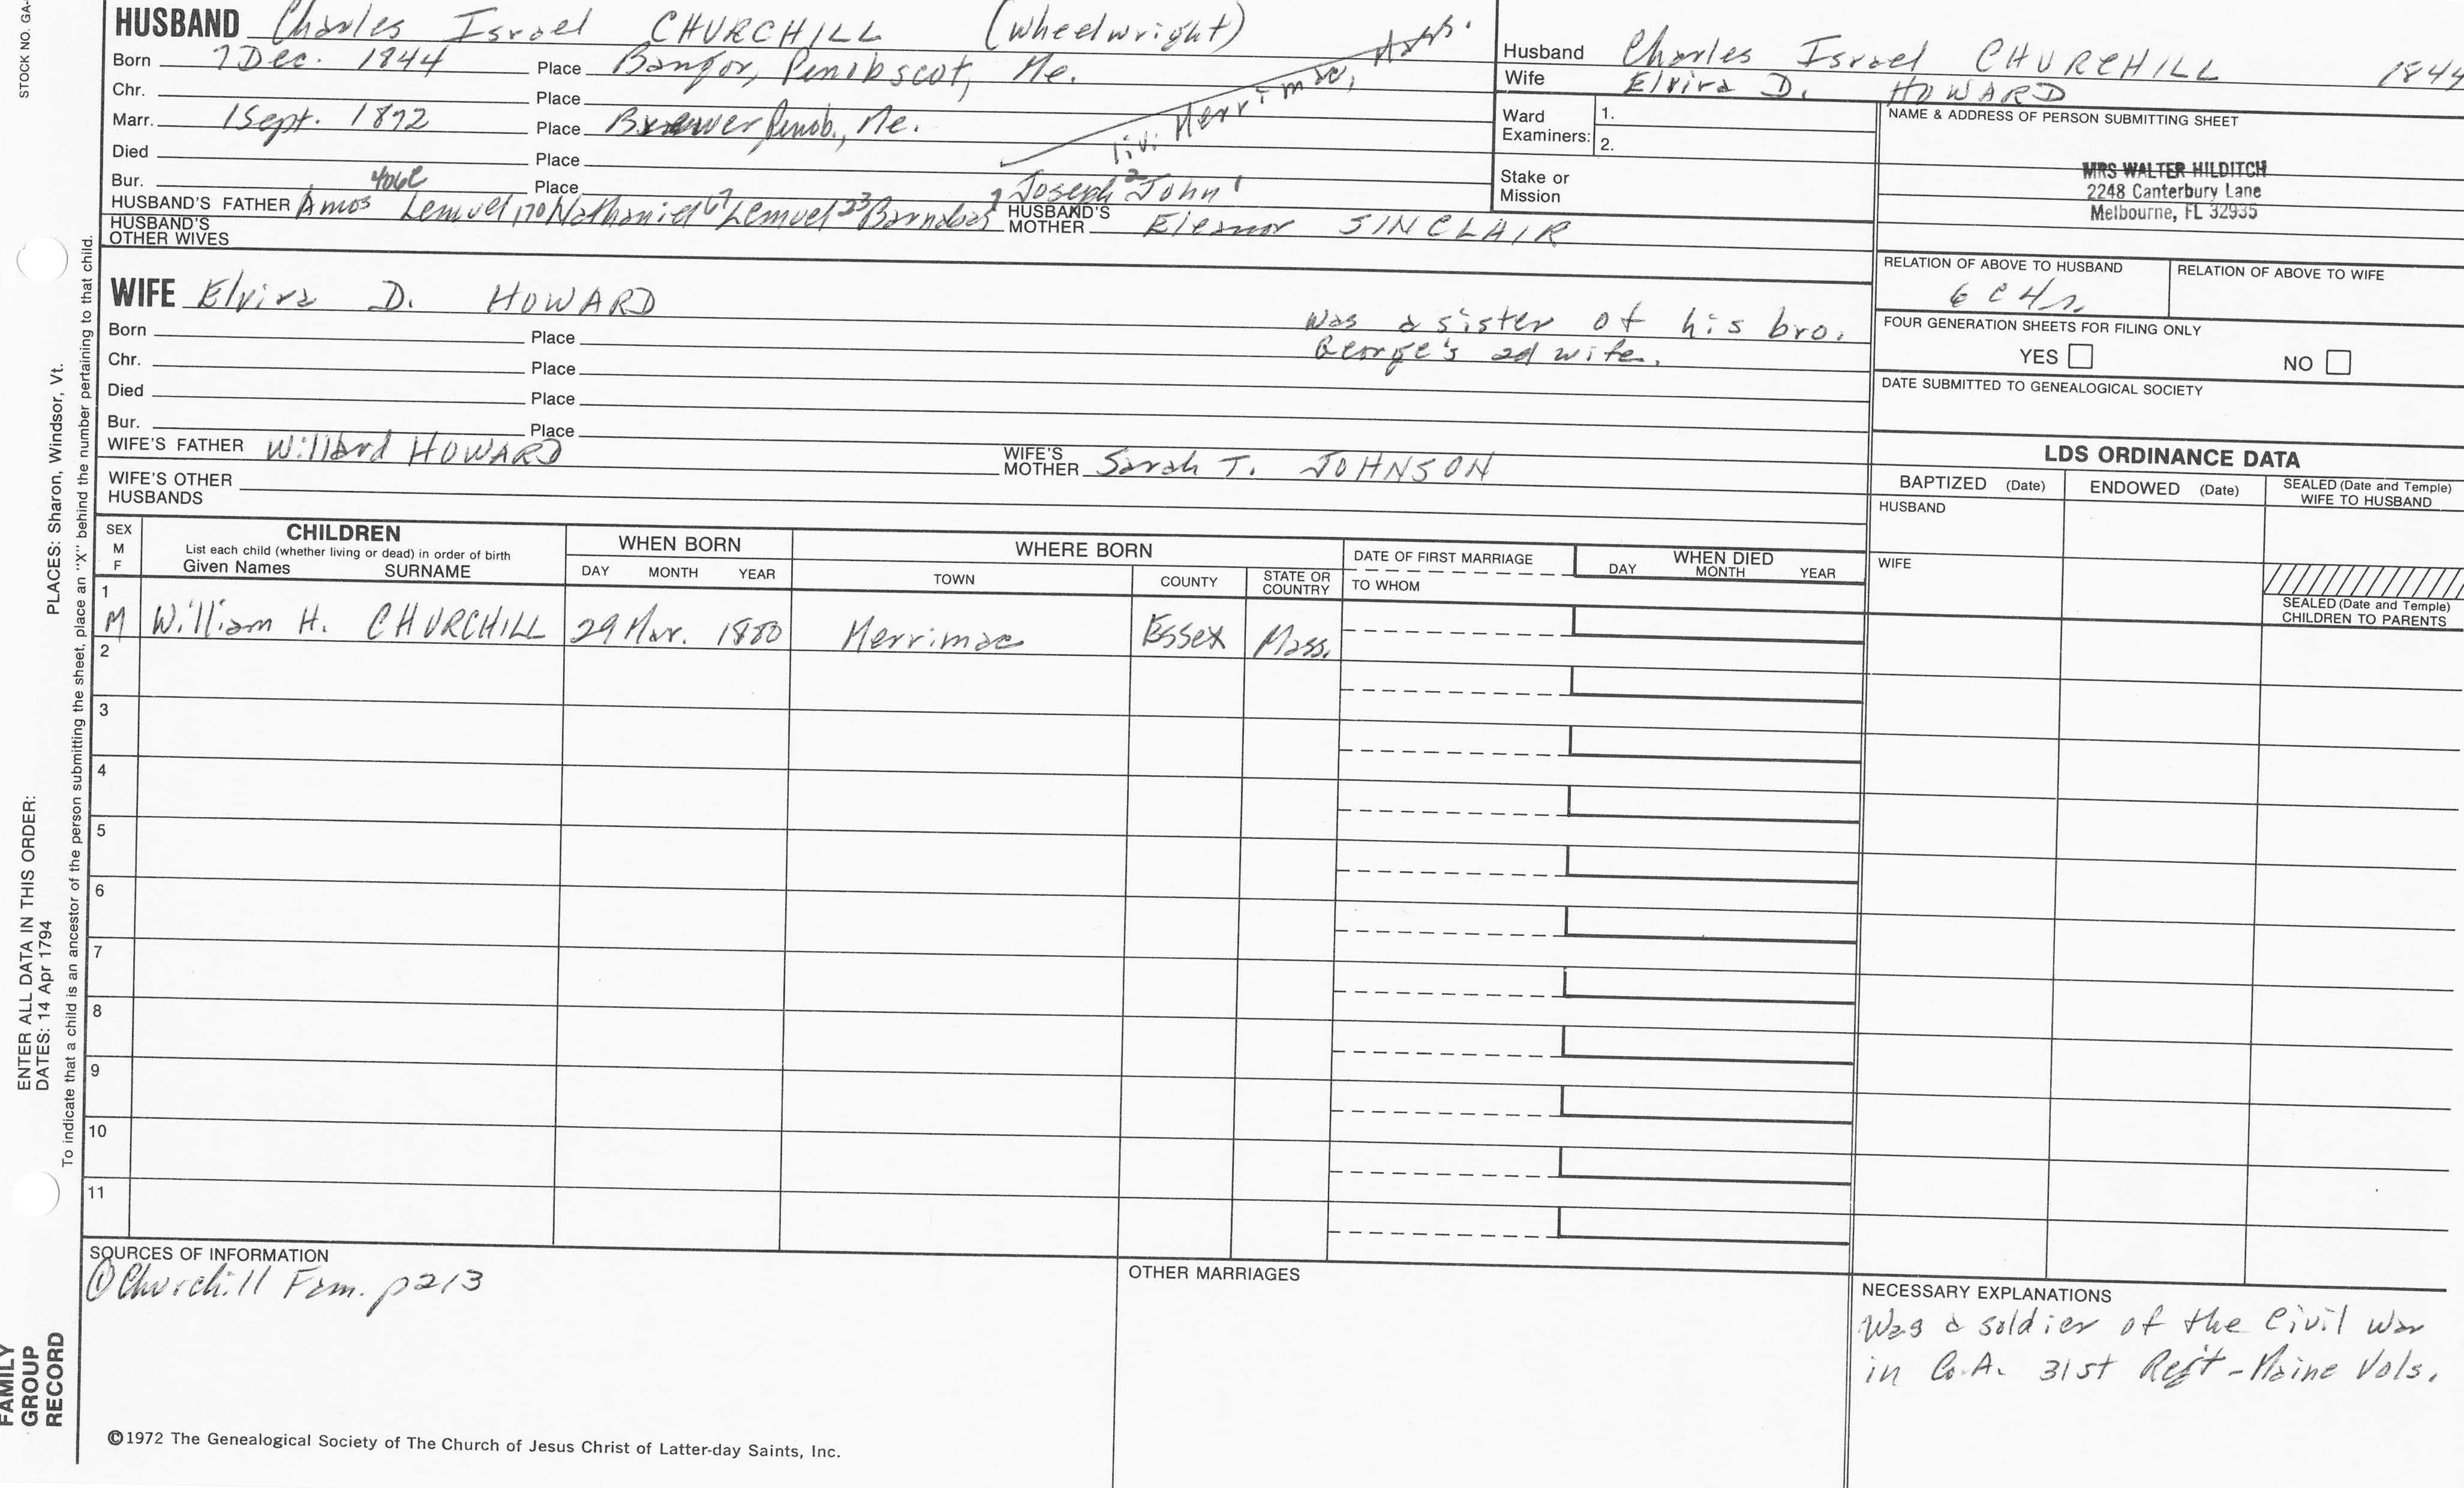 STOCK NO. GA-
HUSBAND Charles Israel CHURCHILL (Wheelwright)
Born 7 Dec. 1844 Place Bangor, Penobscot, Me.
Chr. Place
liv. Merrimac,
Marr. 1 Sept. 1872 Place Brewer Penob., Me.
Died Place
Bur. Place
406e Joseph 2 John 1
HUSBAND'S FATHER Amos Lemuel 170 Nathaniel 67 Lemuel 23 Barnabas HUSBAND'S MOTHER Eleanor SINCLAIR
HUSBAND'S OTHER WIVES
WIFE Elvira D. HOWARD
was a sister of his bro.
George's 2d wife.
Born Place
Chr. Place
Died Place
Bur. Place
WIFE'S FATHER Willard HOWARD WIFE'S MOTHER Sarah T. JOHNSON
WIFE'S OTHER HUSBANDS
Husband Charles Israel CHURCHILL 1844
Wife Elvira D. HOWARD
Ward Examiners: 1.
2.
Stake or Mission
NAME & ADDRESS OF PERSON SUBMITTING SHEET
MRS WALTER HILDITCH
2248 Canterbury Lane
Melbourne, FL 32935
RELATION OF ABOVE TO HUSBAND RELATION OF ABOVE TO WIFE
6 C 4 r.
FOUR GENERATION SHEETS FOR FILING ONLY
YES NO
DATE SUBMITTED TO GENEALOGICAL SOCIETY
LDS ORDINANCE DATA
BAPTIZED (Date) ENDOWED (Date) SEALED (Date and Temple) WIFE TO HUSBAND
HUSBAND
WIFE
SEALED (Date and Temple) CHILDREN TO PARENTS
SEX M F CHILDREN WHEN BORN WHERE BORN DATE OF FIRST MARRIAGE WHEN DIED
List each child (whether living or dead) in order of birth
Given Names SURNAME DAY MONTH YEAR TOWN COUNTY STATE OR COUNTRY TO WHOM DAY MONTH YEAR
1
M William H. CHURCHILL 29 Mar. 1880 Merrimac Essex Mass.
2
3
4
5
6
7
8
9
10
11
SOURCES OF INFORMATION
① Churchill Fam. p213
OTHER MARRIAGES
NECESSARY EXPLANATIONS
Was a soldier of the Civil War
in Co. A. 31st Reg't - Maine Vols.
©1972 The Genealogical Society of The Church of Jesus Christ of Latter-day Saints, Inc.
FAMILY
GROUP
RECORD
ENTER ALL DATA IN THIS ORDER:
DATES: 14 Apr 1794
PLACES: Sharon, Windsor, Vt.
To indicate that a child is an ancestor of the person submitting the sheet, place an "X" behind the number pertaining to that child.